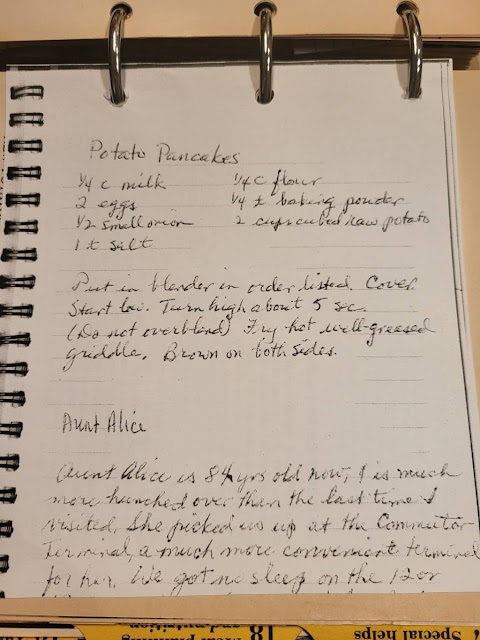 Potato Pancakes
1/4 c milk 1/4 c flour
2 eggs 1/4 t baking powder
1/2 small onion 2 cups cubed raw potato
1 t salt
Put in blender in order listed. Cover.
Start low. Turn high about 5 sec.
(Do not overblend) Fry hot well-greased
griddle. Brown on both sides.
Aunt Alice
Aunt Alice is 84 yrs old now, & is much
more hunched over than the last time I
visited. She picked us up at the Commutor
Terminal, a much more convenient terminal
for her. We got no sleep on the 12 or
Meal planning
and nutrition
18
Special helps